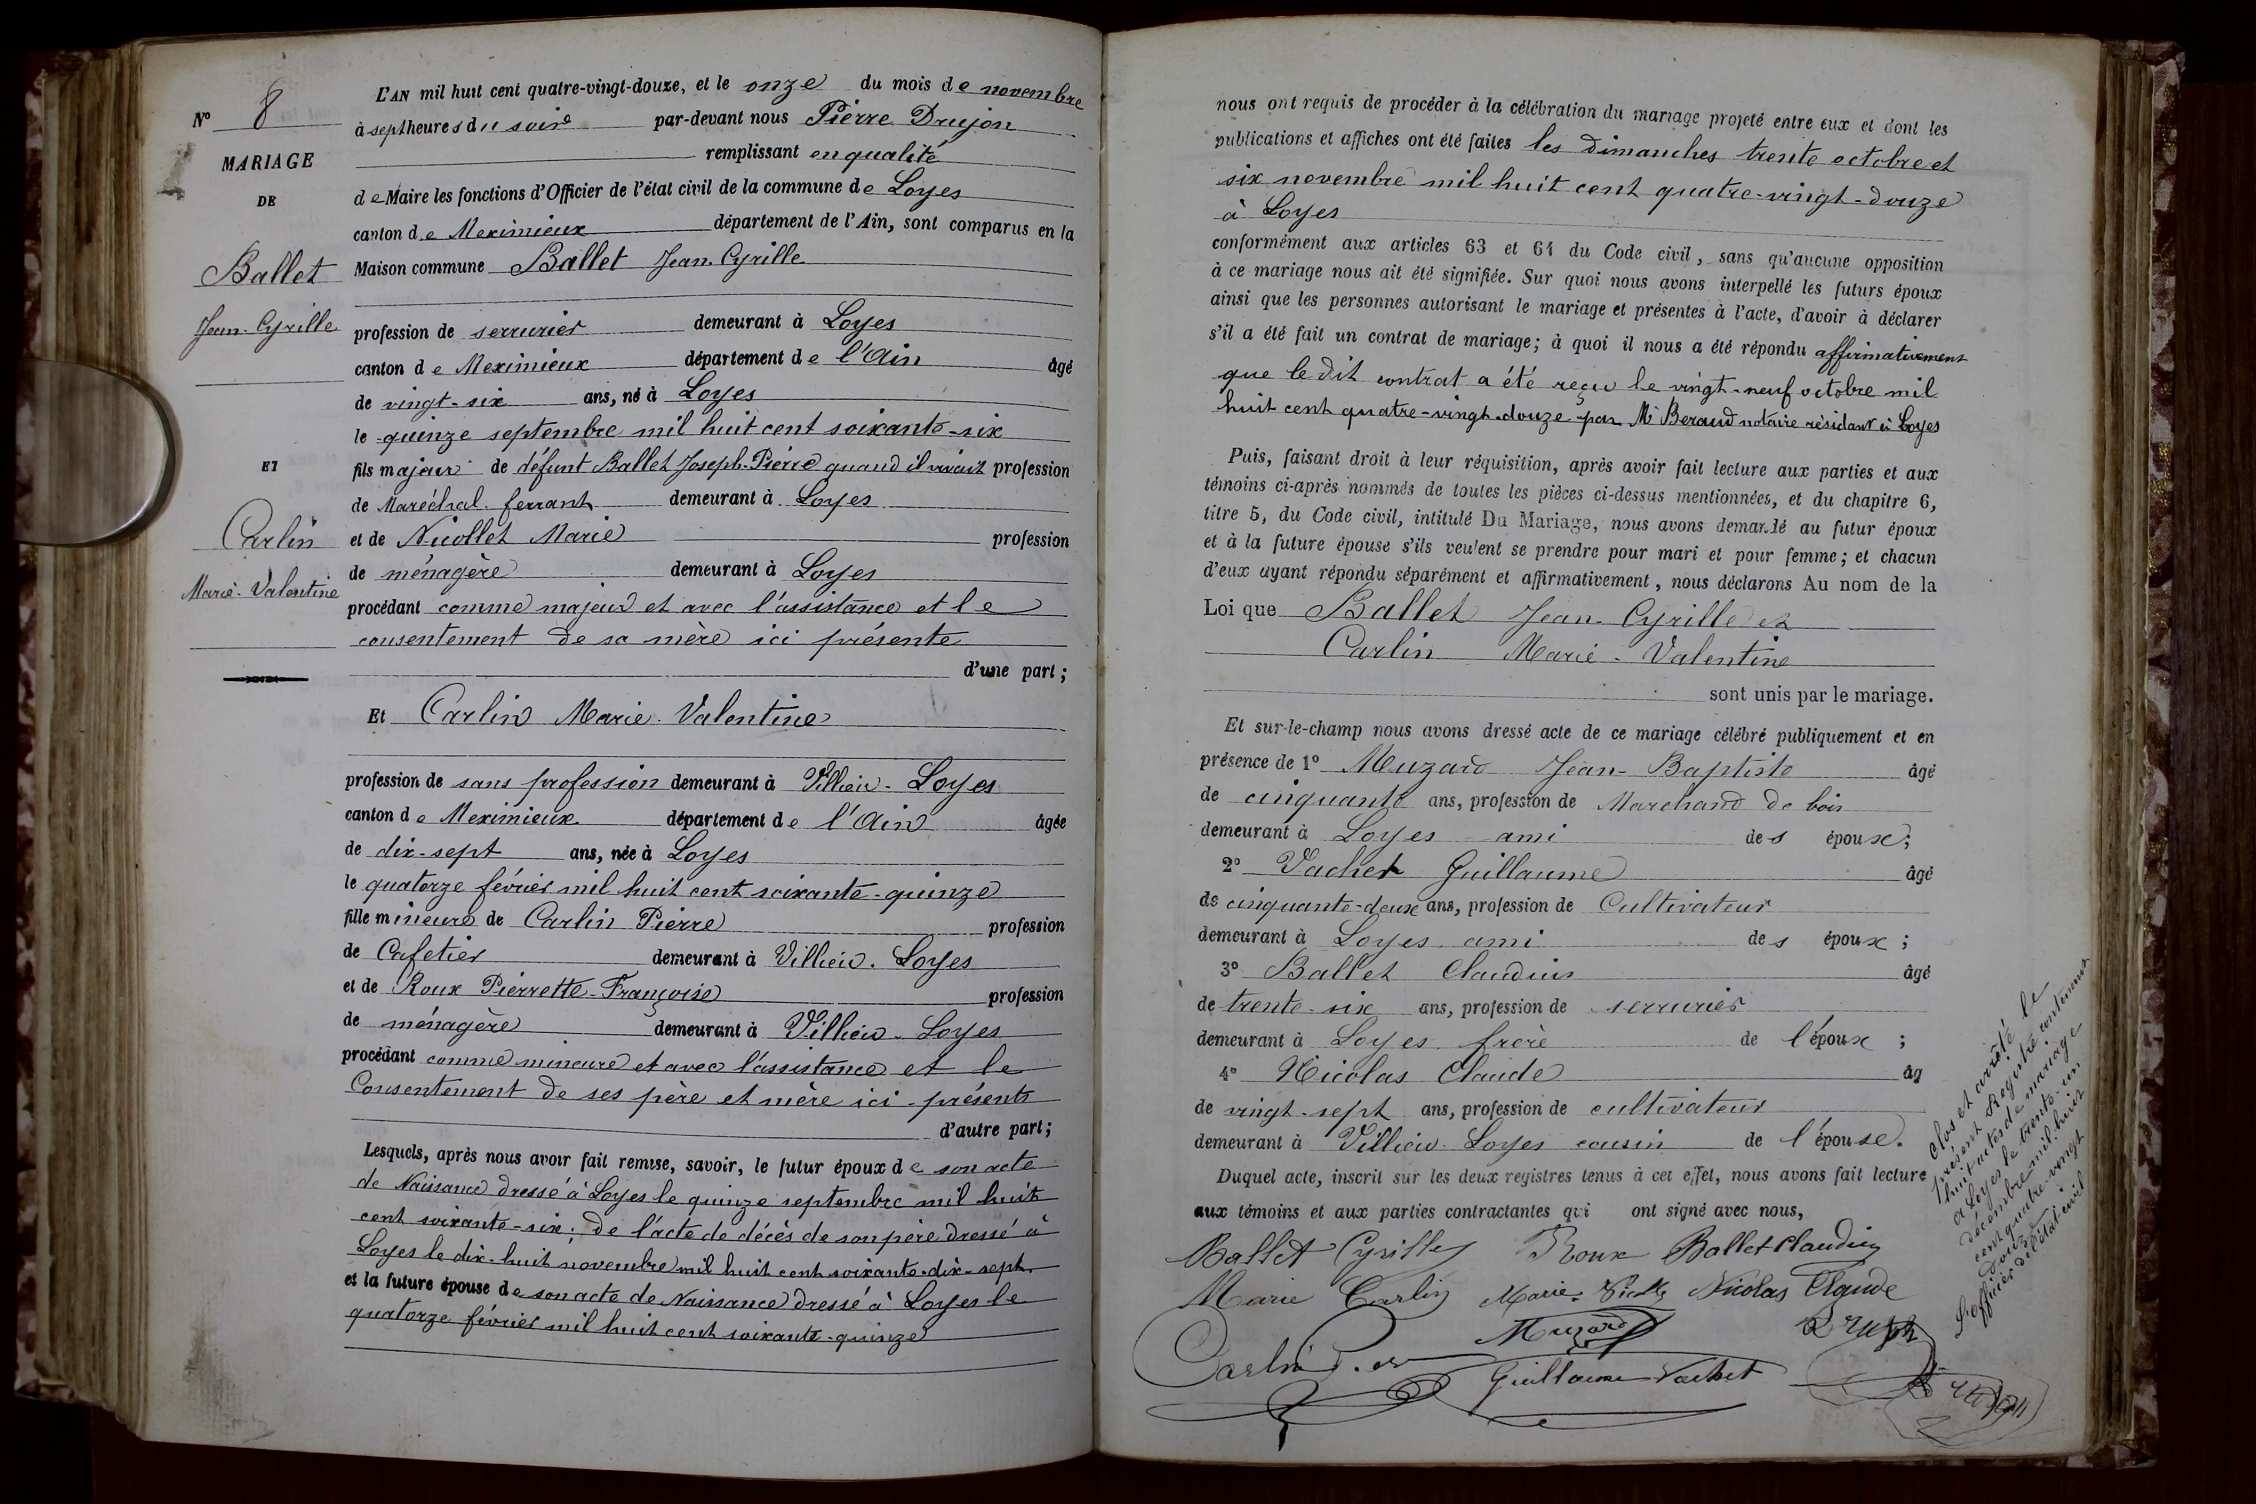 N° 8
MARIAGE
DE
Ballet
Jean-Cyrille
ET
Carlin
Marie-Valentine
L'AN mil huit cent quatre-vingt-douze, et le onze du mois de novembre
à sept heures du soir par-devant nous Pierre Drujon
remplissant en qualité
de Maire les fonctions d'Officier de l'état civil de la commune de Loyes
canton de Meximieux département de l'Ain, sont comparus en la
Maison commune Ballet Jean-Cyrille
profession de serrurier demeurant à Loyes
canton de Meximieux département de l'Ain âgé
de vingt-six ans, né à Loyes
le quinze septembre mil huit cent soixante-six
fils majeur de défunt Ballet Joseph-Pierre quand il vivait profession
de Maréchal ferrant demeurant à Loyes
et de Nicollet Marie profession
de ménagère demeurant à Loyes
procédant comme majeur et avec l'assistance et le
consentement de sa mère ici présente
d'une part;
Et Carlin Marie-Valentine
profession de sans profession demeurant à Villieu-Loyes
canton de Meximieux département de l'Ain âgée
de dix-sept ans, née à Loyes
le quatorze février mil huit cent soixante-quinze
fille mineure de Carlin Pierre profession
de Cafetier demeurant à Villieu-Loyes
et de Roux Pierrette-Françoise profession
de ménagère demeurant à Villieu-Loyes
procédant comme mineure et avec l'assistance et le
Consentement de ses père et mère ici présents
d'autre part;
Lesquels, après nous avoir fait remise, savoir, le futur époux de son acte
de Naissance dressé à Loyes le quinze septembre mil huit
cent soixante-six; de l'acte de décès de son père dressé à
Loyes le dix-huit novembre mil huit cent soixante-dix-sept.
et la future épouse de son acte de Naissance dressé à Loyes le
quatorze février mil huit cent soixante-quinze
nous ont requis de procéder à la célébration du mariage projeté entre eux et dont les
publications et affiches ont été faites les dimanches trente octobre et
six novembre mil huit cent quatre-vingt-douze
à Loyes
conformément aux articles 63 et 64 du Code civil, sans qu'aucune opposition
à ce mariage nous ait été signifiée. Sur quoi nous avons interpellé les futurs époux
ainsi que les personnes autorisant le mariage et présentes à l'acte, d'avoir à déclarer
s'il a été fait un contrat de mariage; à quoi il nous a été répondu affirmativement
que le dit contrat a été reçu le vingt-neuf octobre mil
huit cent quatre-vingt-douze par Me Beraud notaire résidant à Loyes
Puis, faisant droit à leur réquisition, après avoir fait lecture aux parties et aux
témoins ci-après nommés de toutes les pièces ci-dessus mentionnées, et du chapitre 6,
titre 5, du Code civil, intitulé Du Mariage, nous avons demandé au futur époux
et à la future épouse s'ils veulent se prendre pour mari et pour femme; et chacun
d'eux ayant répondu séparément et affirmativement, nous déclarons Au nom de la
Loi que Ballet Jean-Cyrille et
Carlin Marie-Valentine
sont unis par le mariage.
Et sur-le-champ nous avons dressé acte de ce mariage célébré publiquement et en
présence de 1° Muzard Jean-Baptiste âgé
de cinquante ans, profession de Marchand de bois
demeurant à Loyes ami des époux;
2° Vachet Guillaume âgé
de cinquante-deux ans, profession de Cultivateur
demeurant à Loyes ami des époux;
3° Ballet Claudius âgé
de trente-six ans, profession de serrurier
demeurant à Loyes frère de l'époux;
4° Nicolas Claude âg
de vingt-sept ans, profession de cultivateur
demeurant à Villieu-Loyes cousin de l'épouse.
Duquel acte, inscrit sur les deux registres tenus à cet effet, nous avons fait lecture
aux témoins et aux parties contractantes qui ont signé avec nous,
Ballet Cyrille Roux Ballet Claudius
Marie Carlin Marie Nicolas Claude
Carlin Muzard Drujon
Guillaume Vachet
Clos et arrêté le
présent Registre contenant
huit actes de mariage
à Loyes le trente-un
décembre mil huit
cent quatre-vingt
douze
L'officier de l'état civil
Drujon